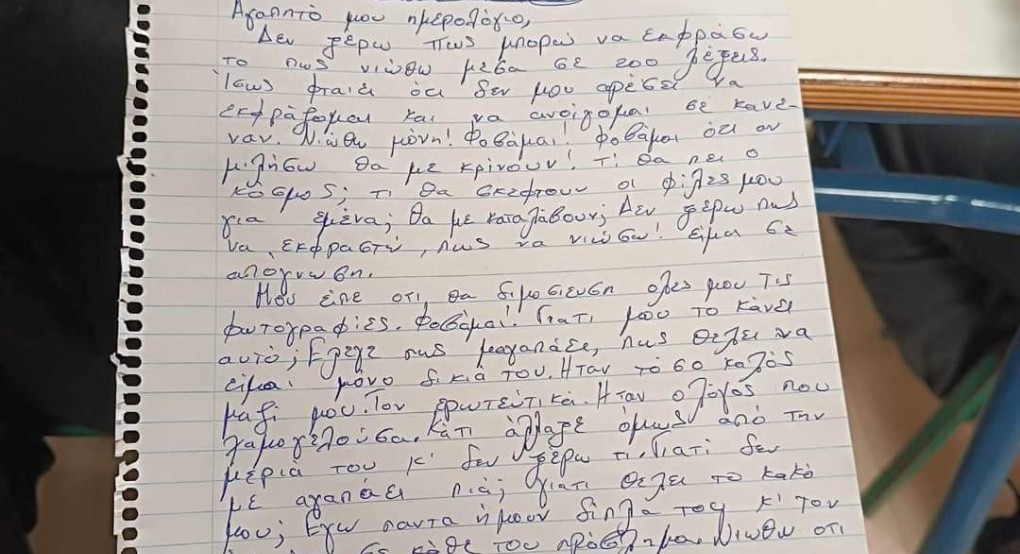 Αγαπητό μου ημερολόγιο,
Δεν ξέρω πως μπορώ να εκφράσω
το πως νιώθω μέσα σε 200 λέξεις.
Ίσως φταίει ότι δεν μου αρέσει να
εκφράζομαι και να ανοίγομαι σε κανέ-
ναν. Νιώθω μόνη! Φοβάμαι! Φοβάμαι ότι αν
μιλήσω θα με κρίνουν! τι θα πει ο
κόσμος; τι θα σκεφτουν οι φίλες μου
για εμένα; θα με καταλάβουν; Δεν ξέρω πως
να εκφραστώ, πως να νιώσω! είμαι σε
απόγνωση.
Μου είπε οτι θα διμοσιευση ολες μου τις
φωτογραφίες. Φοβάμαι! Γιατι μου το κάνει
αυτό; Έλεγε πως μ'αγαπάσε, πως θελει να
είμαι μόνο δικιά του. Ήταν τόσο καλός
μαζί μου. Τον ερωτεύτικα. Ήταν ο λόγος που
χαμογελούσα. Κάτι άλλαξε όμως από την
μέριά του κ' δεν ξέρω τι. Γιατί δεν
με αγαπάει πιά; γιατι θελει το κακό
μου; Εγω παντα ήμουν δίπλα του κ' τον
σε κάθε του πρόβλημα. Νιωθω οτι